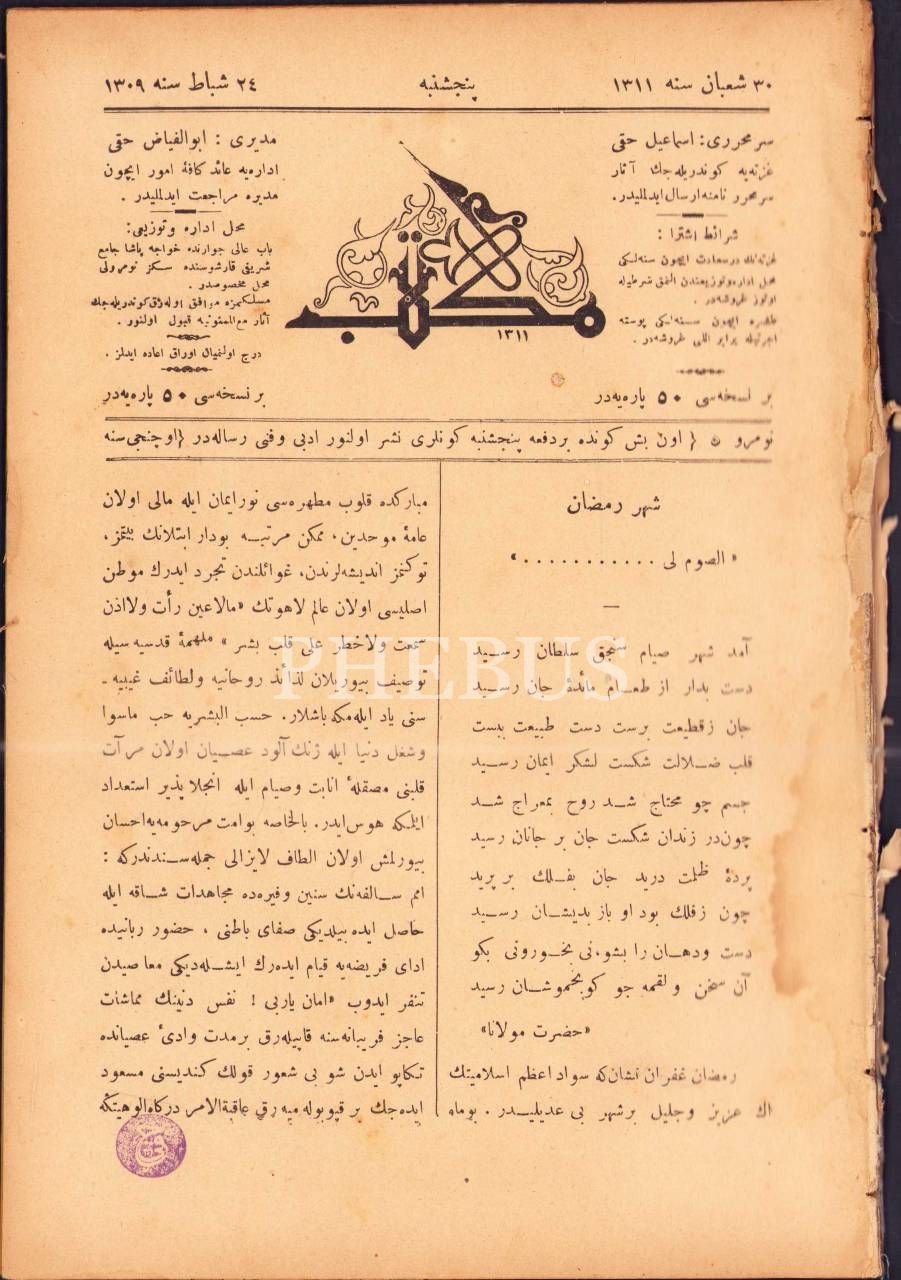 ٣٠ شعبان سنه ١٣١١
پنجشنبه
٢٤ شباط سنه ١٣٠٩
سر محرری : اسماعیل حقی
غزته‌یه کوندریله‌جك آثار
سر محرر نامنه ارسال ایدلملیدر.
شرائط اشترا :
غزته‌نك درسعادت ایچون سنه‌لکی
محل اداره‌دن
اوتوز غروشه‌در .
طشره ایچون سنه‌لکی پوسته
اجرتیله برابر اللی غروشه‌در .
بر نسخه‌سی ٥٠ پاره‌یه‌در
مکتب
١٣١١
مدیری : ابوالفیاض حقی
اداره‌یه عائد کافهٔ امور ایچون
مدیره مراجعت ایدلملیدر .
محل اداره وتوزیعی :
باب عالی جوارنده خواجه پاشا جامع
شریفی قارشوسنده سکز نومرولی
محل مخصوصدر .
مسلکمزه موافق اوله‌رق کوندریله‌جك
آثار مع‌الممنونیه قبول اولنور .
درج اولنمیان اوراق اعاده ایدلمز .
بر نسخه‌سی ٥٠ پاره‌یه‌در
نومرو ٥ { اون بش کونده بر دفعه پنجشنبه کونلری نشر اولنور ادبی وفنی رساله‌در } اوچنجی سنه
شهر رمضان
« الصوم لی . . . . . . . . . . . »
آمد شهر صیام سنجق سلطان رسـید
دست بدار از طعـام مائدهٔ جان رسـید
جان زقطیعت برست دست طبیعت ببست
قلب ضـلالت شکست لشکر ایمان رسـید
جسم چو محتاج شـد روح بمعراج شـد
چون‌در زندان شکست جان بر جانان رسید
پردهٔ ظلمت درید جان بفـلك بر پرید
چون زفلك بود او باز بدیشـان رسـید
دست ودهـان را بشو، نی بخـور ونی بکو
آن سخن ولقمه جو کو بخموشـان رسید
«حضرت مولانا»
رمضان غفران نشان که سواد اعظم اسلامیتك
اك عزیز وجلیل بر شهر بی عدیلیـدر . بوماه
مبارکده قلوب مطهره‌سی نور ایمان ایله مالی اولان
عامهٔ موحدین، ممکن مرتبـه بودار ابتلانك بیتمز،
توکنمز اندیشه‌لرندن، غوائلندن تجرد ایدرك موطن
اصلیسی اولان عالم لاهوتك «مالاعین رأت ولااذن
سمعت ولاخطر علی قلب بشر » ملهمهٔ قدسیه سیله
توصیف بیوریلان لذائذ روحانیه ولطائف غیبیه ـ
سنی یاد ایله‌مکه باشلار. حسب البشریه حب ماسوا
وشغل دنیا ایله ژنك آلود عصـیان اولان مرآت
قلبنی مصقلهٔ انابت وصیام ایله انجلاپذیر استعداد
ایلمکه هوس ایدر. بالخاصه بوامت مرحومه‌یه احسان
بیورلمش اولان الطاف لایزالی جمله‌سـندندرکه :
امم سـالفه‌نك سنین وفیره‌ده مجاهدات شـاقه ایله
حاصل ایده بیلدیکی صفای باطنی ، حضور ربانیده
ادای فریضه‌یه قیام ایده‌رك ایشـله‌دیکی معاصیدن
تنفر ایدوب «امان یاربی ! نفس دنینك مماشات
عاجز فریبانه‌سنه قاپیله‌رق بر مدت وادیٔ عصیانده
تـکاپو ایدن شو بی شعور قولك کندیسنی مسعود
ایده‌جك بر قپو بوله میه‌رق عاقبة‌الامر درکاه الوهیتکه
PHEBUS